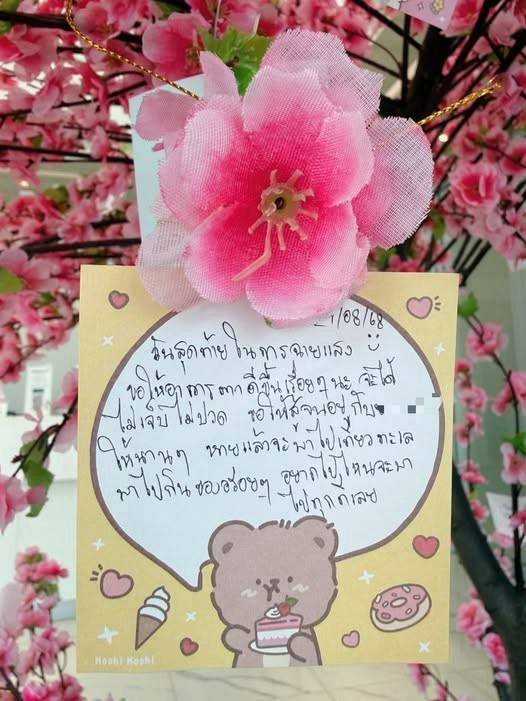 1/08/68
วันสุดท้าย ในการฉายแสง
ขอให้อาการตาดีขึ้นเรื่อยๆนะ จะได้
ไม่เจ็บไม่ปวด ขอให้สู้จนอยู่กับ
ให้นานๆ หายแล้วจะพาไปเที่ยวทะเล
พาไปกินของอร่อยๆ อยากไปไหนจะพา
ไปทุกที่เลย
Hoshi Hoshi